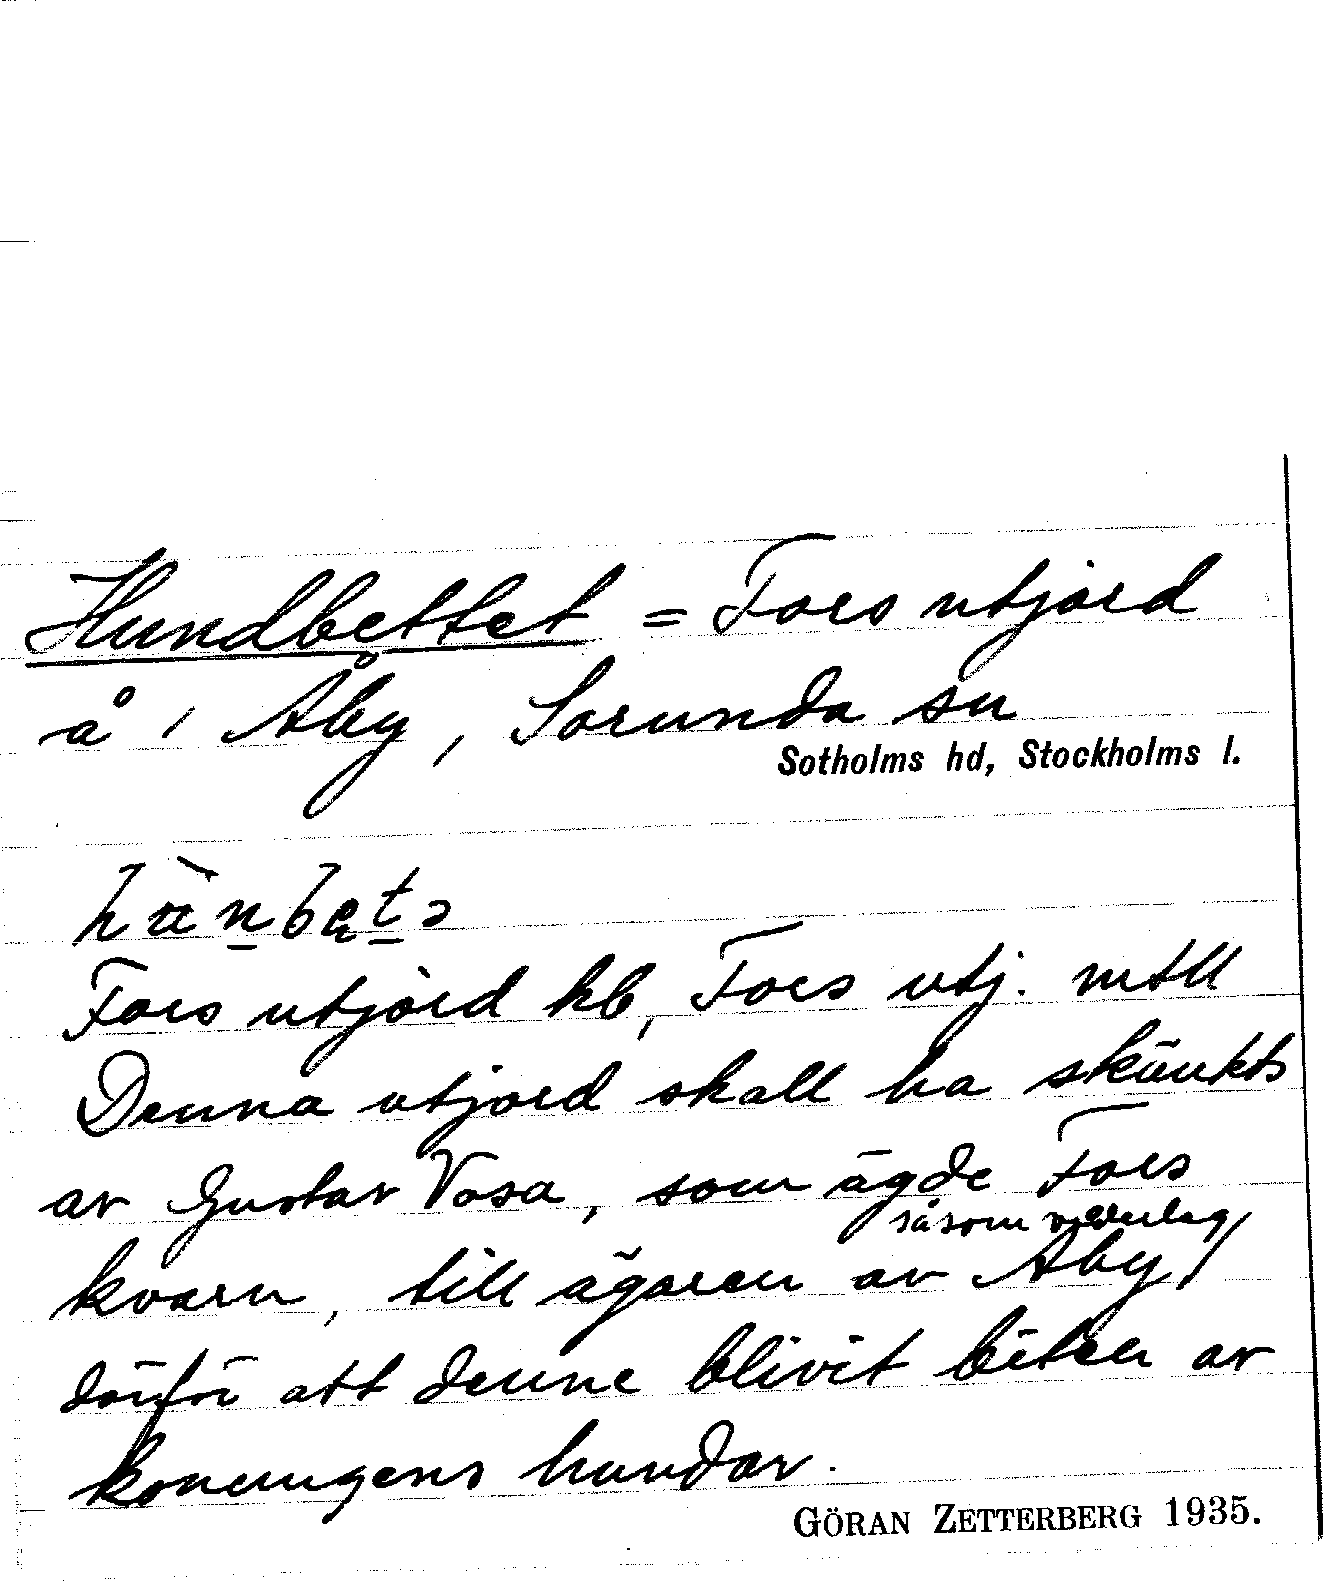 Hundbettet = Fors utjord
å i Åby, Sorunda sn
Sotholms hd, Stockholms l.
hùnbetə
Fors utjord hb, Fors utj. mtll
Denna utjord skall ha skänkts
av Gustav Vasa, som ägde Fors
såsom vederlag
kvarn, till ägaren av Åby/
därför att denne blivit biten av
konungens hundar.
GÖRAN ZETTERBERG 1935.